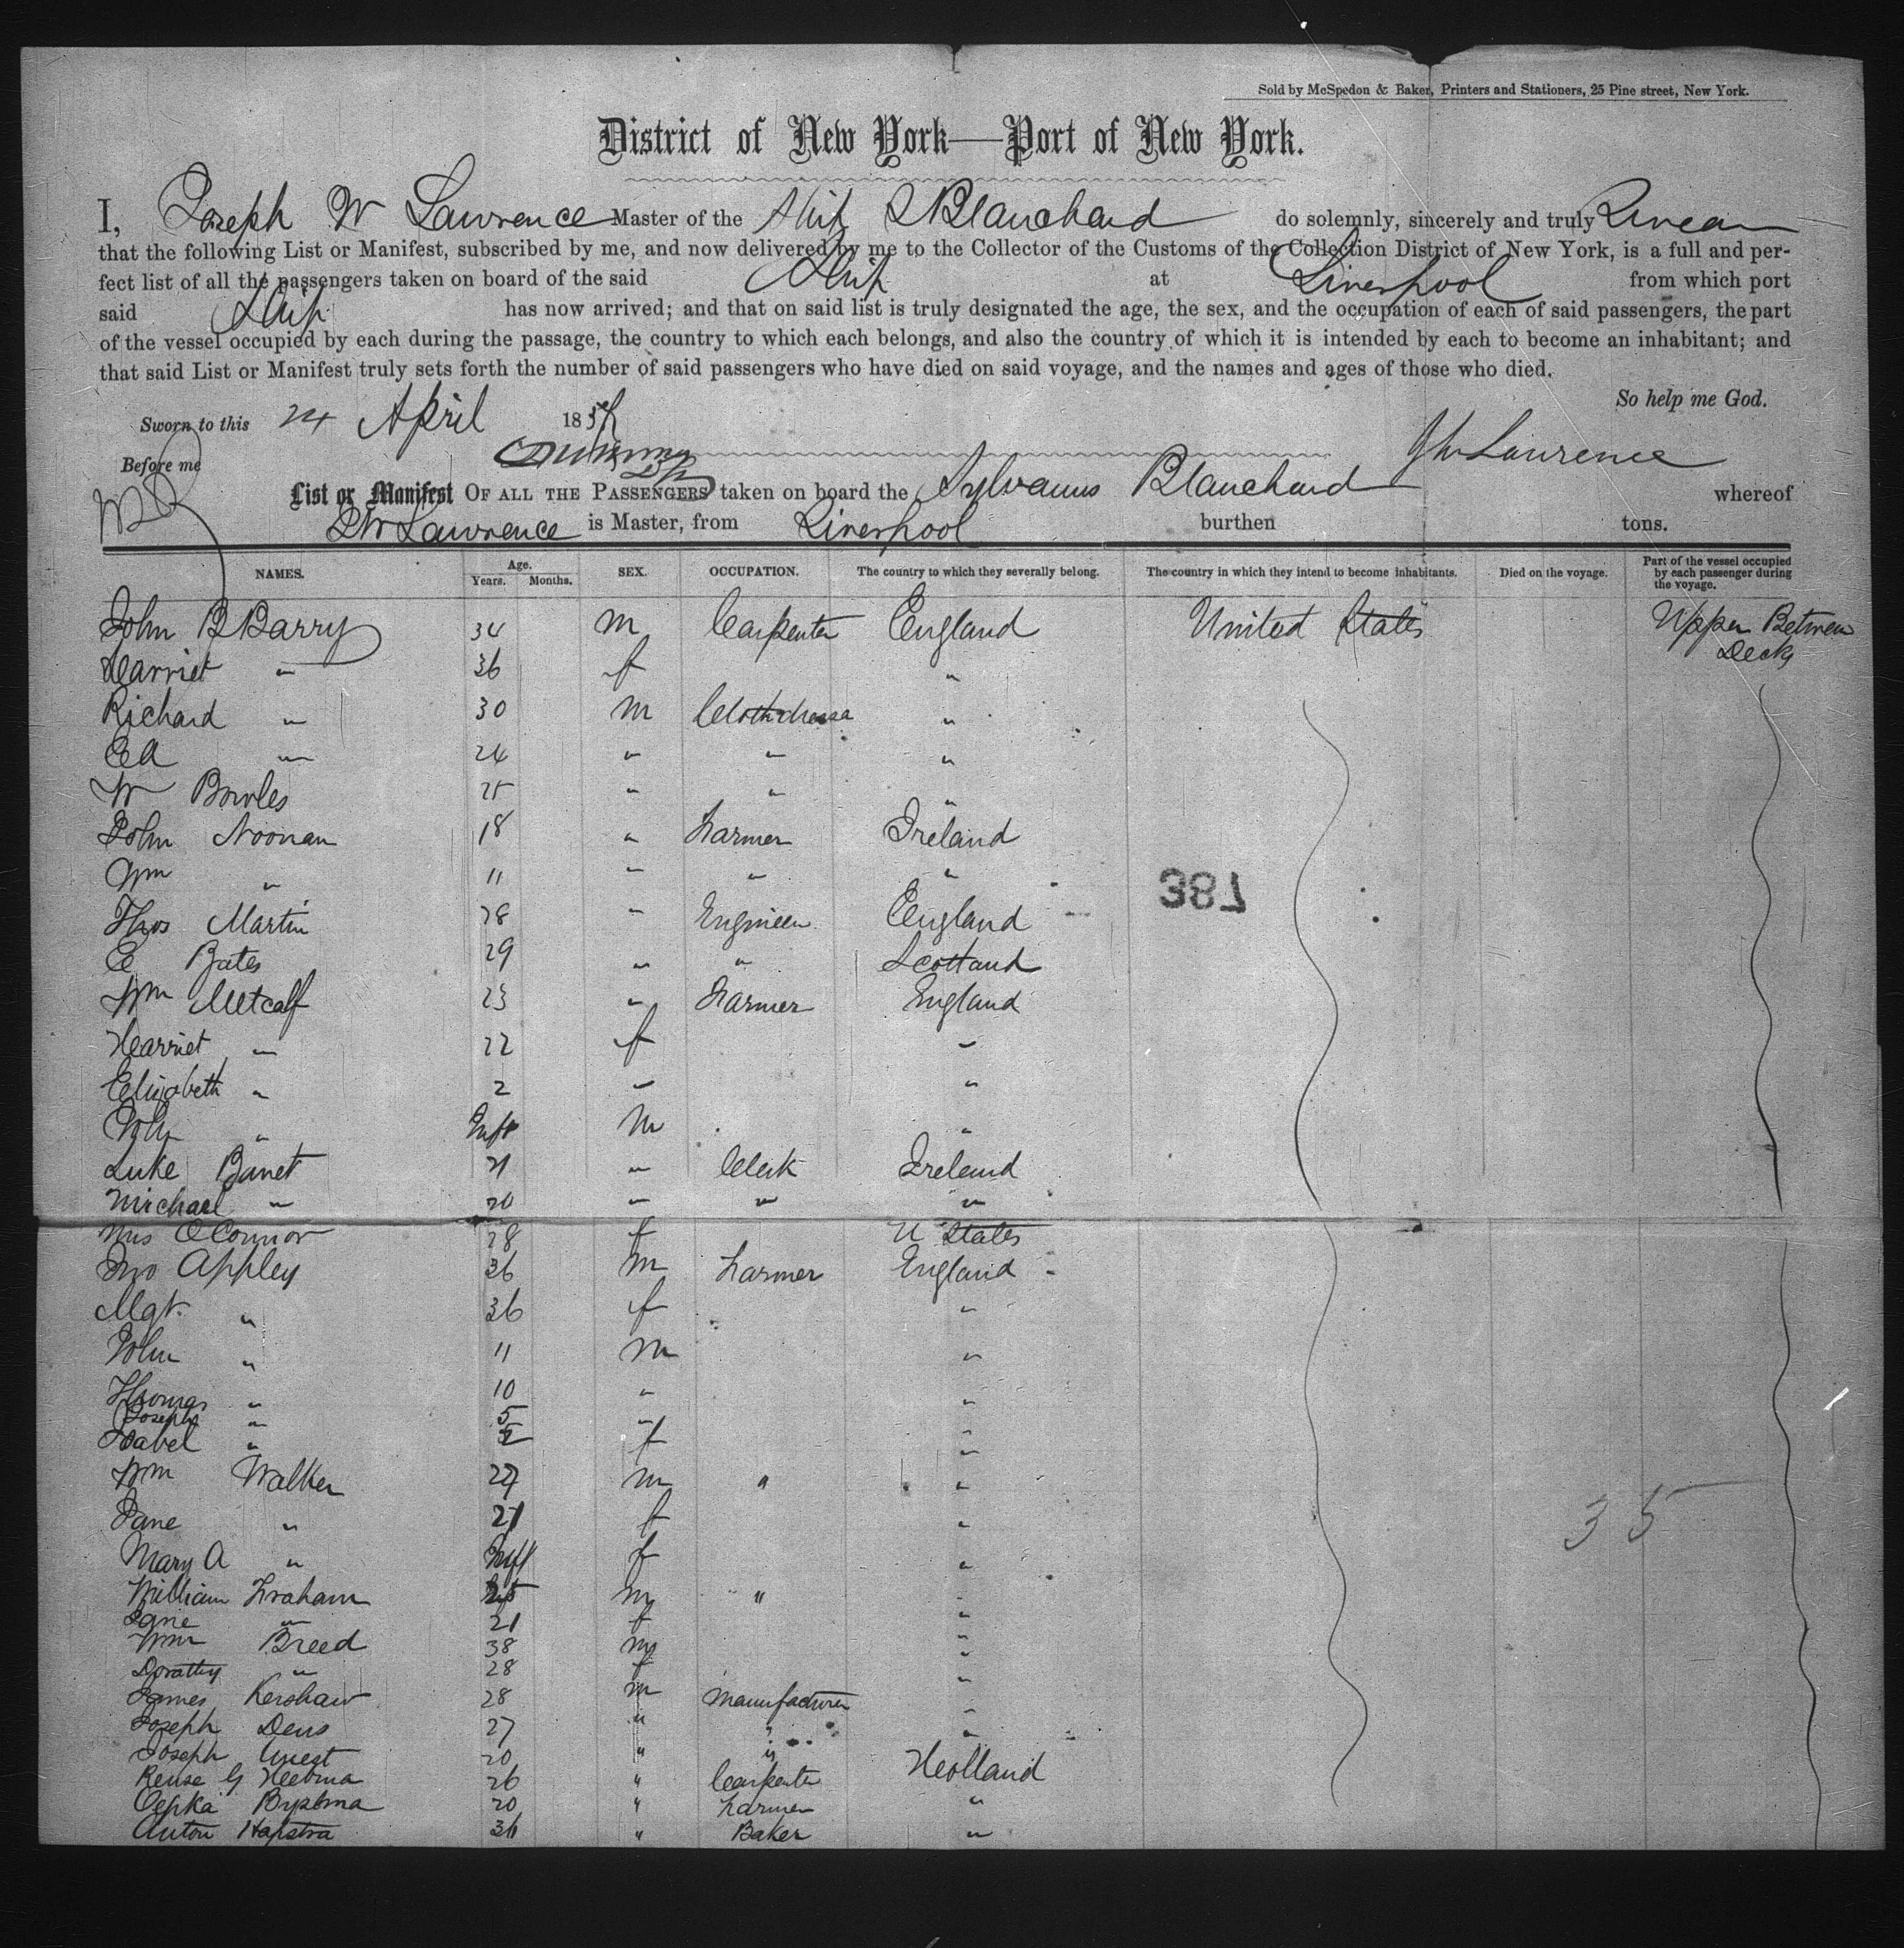 Sold by McSpedon & Baker, Printers and Stationers, 25 Pine street, New York.
District of New York—Port of New York.
I, Joseph W Lawrence Master of the Ship S Blanchard do solemnly, sincerely and truly Swear
that the following List or Manifest, subscribed by me, and now delivered by me to the Collector of the Customs of the Collection District of New York, is a full and per-
fect list of all the passengers taken on board of the said Ship at Liverpool from which port
said Ship has now arrived; and that on said list is truly designated the age, the sex, and the occupation of each of said passengers, the part
of the vessel occupied by each during the passage, the country to which each belongs, and also the country of which it is intended by each to become an inhabitant; and
that said List or Manifest truly sets forth the number of said passengers who have died on said voyage, and the names and ages of those who died.
So help me God.
Sworn to this 24 April 185
Before me
JW Lawrence
List or Manifest OF ALL THE PASSENGERS taken on board the Sylvanus Blanchard whereof
JW Lawrence is Master, from Liverpool burthen tons.
NAMES. Age. Years. Months. SEX. OCCUPATION. The country to which they severally belong. The country in which they intend to become inhabitants. Died on the voyage. Part of the vessel occupied by each passenger during the voyage.
John B Barry 34 m Carpenter England United States Upper Between Decks
Harriet " 36 f "
Richard " 30 m "
EA " 24 " " "
W Bowles 25 " " "
John Noonan 18 " Farmer Ireland
Wm " 11 " " "
387
Thos Martin 28 " Engineer England
E Bates 29 " " Scotland
Wm Metcalf 23 " Farmer England
Harriet " 22 f "
Elizabeth " 2 " "
John " Inft m "
Luke Banet 21 " Clerk Ireland
Michael " 20 " " "
Mrs O'Connor 28 f U States
Jno Appley 36 m Farmer England
Mgt " 36 f "
John " 11 m "
Thomas " 10 " "
Joseph " 5 " "
Isabel " f "
Wm Walker 27 m " "
Jane " 21 f "
35
Mary A " Inft f "
William Graham 25 m " "
Jane " 21 f "
Wm Breed 38 m "
Dorathy " 28 f "
James Kershaw 28 m Manufacturer "
Joseph Dens 27 " " "
Joseph 20 " "
Heebma 26 " Carpenter Holland
Bypsma 20 " Farmer "
Anton Hapstra 36 " Baker "